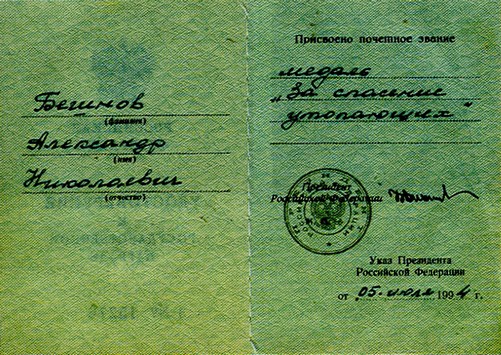 Бешнов
(фамилия)
Александр
(имя)
Николаевич
(отчество)
Присвоено почетное звание
медаль
„За спасение
утопающих"
Президент
Российской Федерации
Указ Президента
Российской Федерации
от „05„ июля 1994 г.